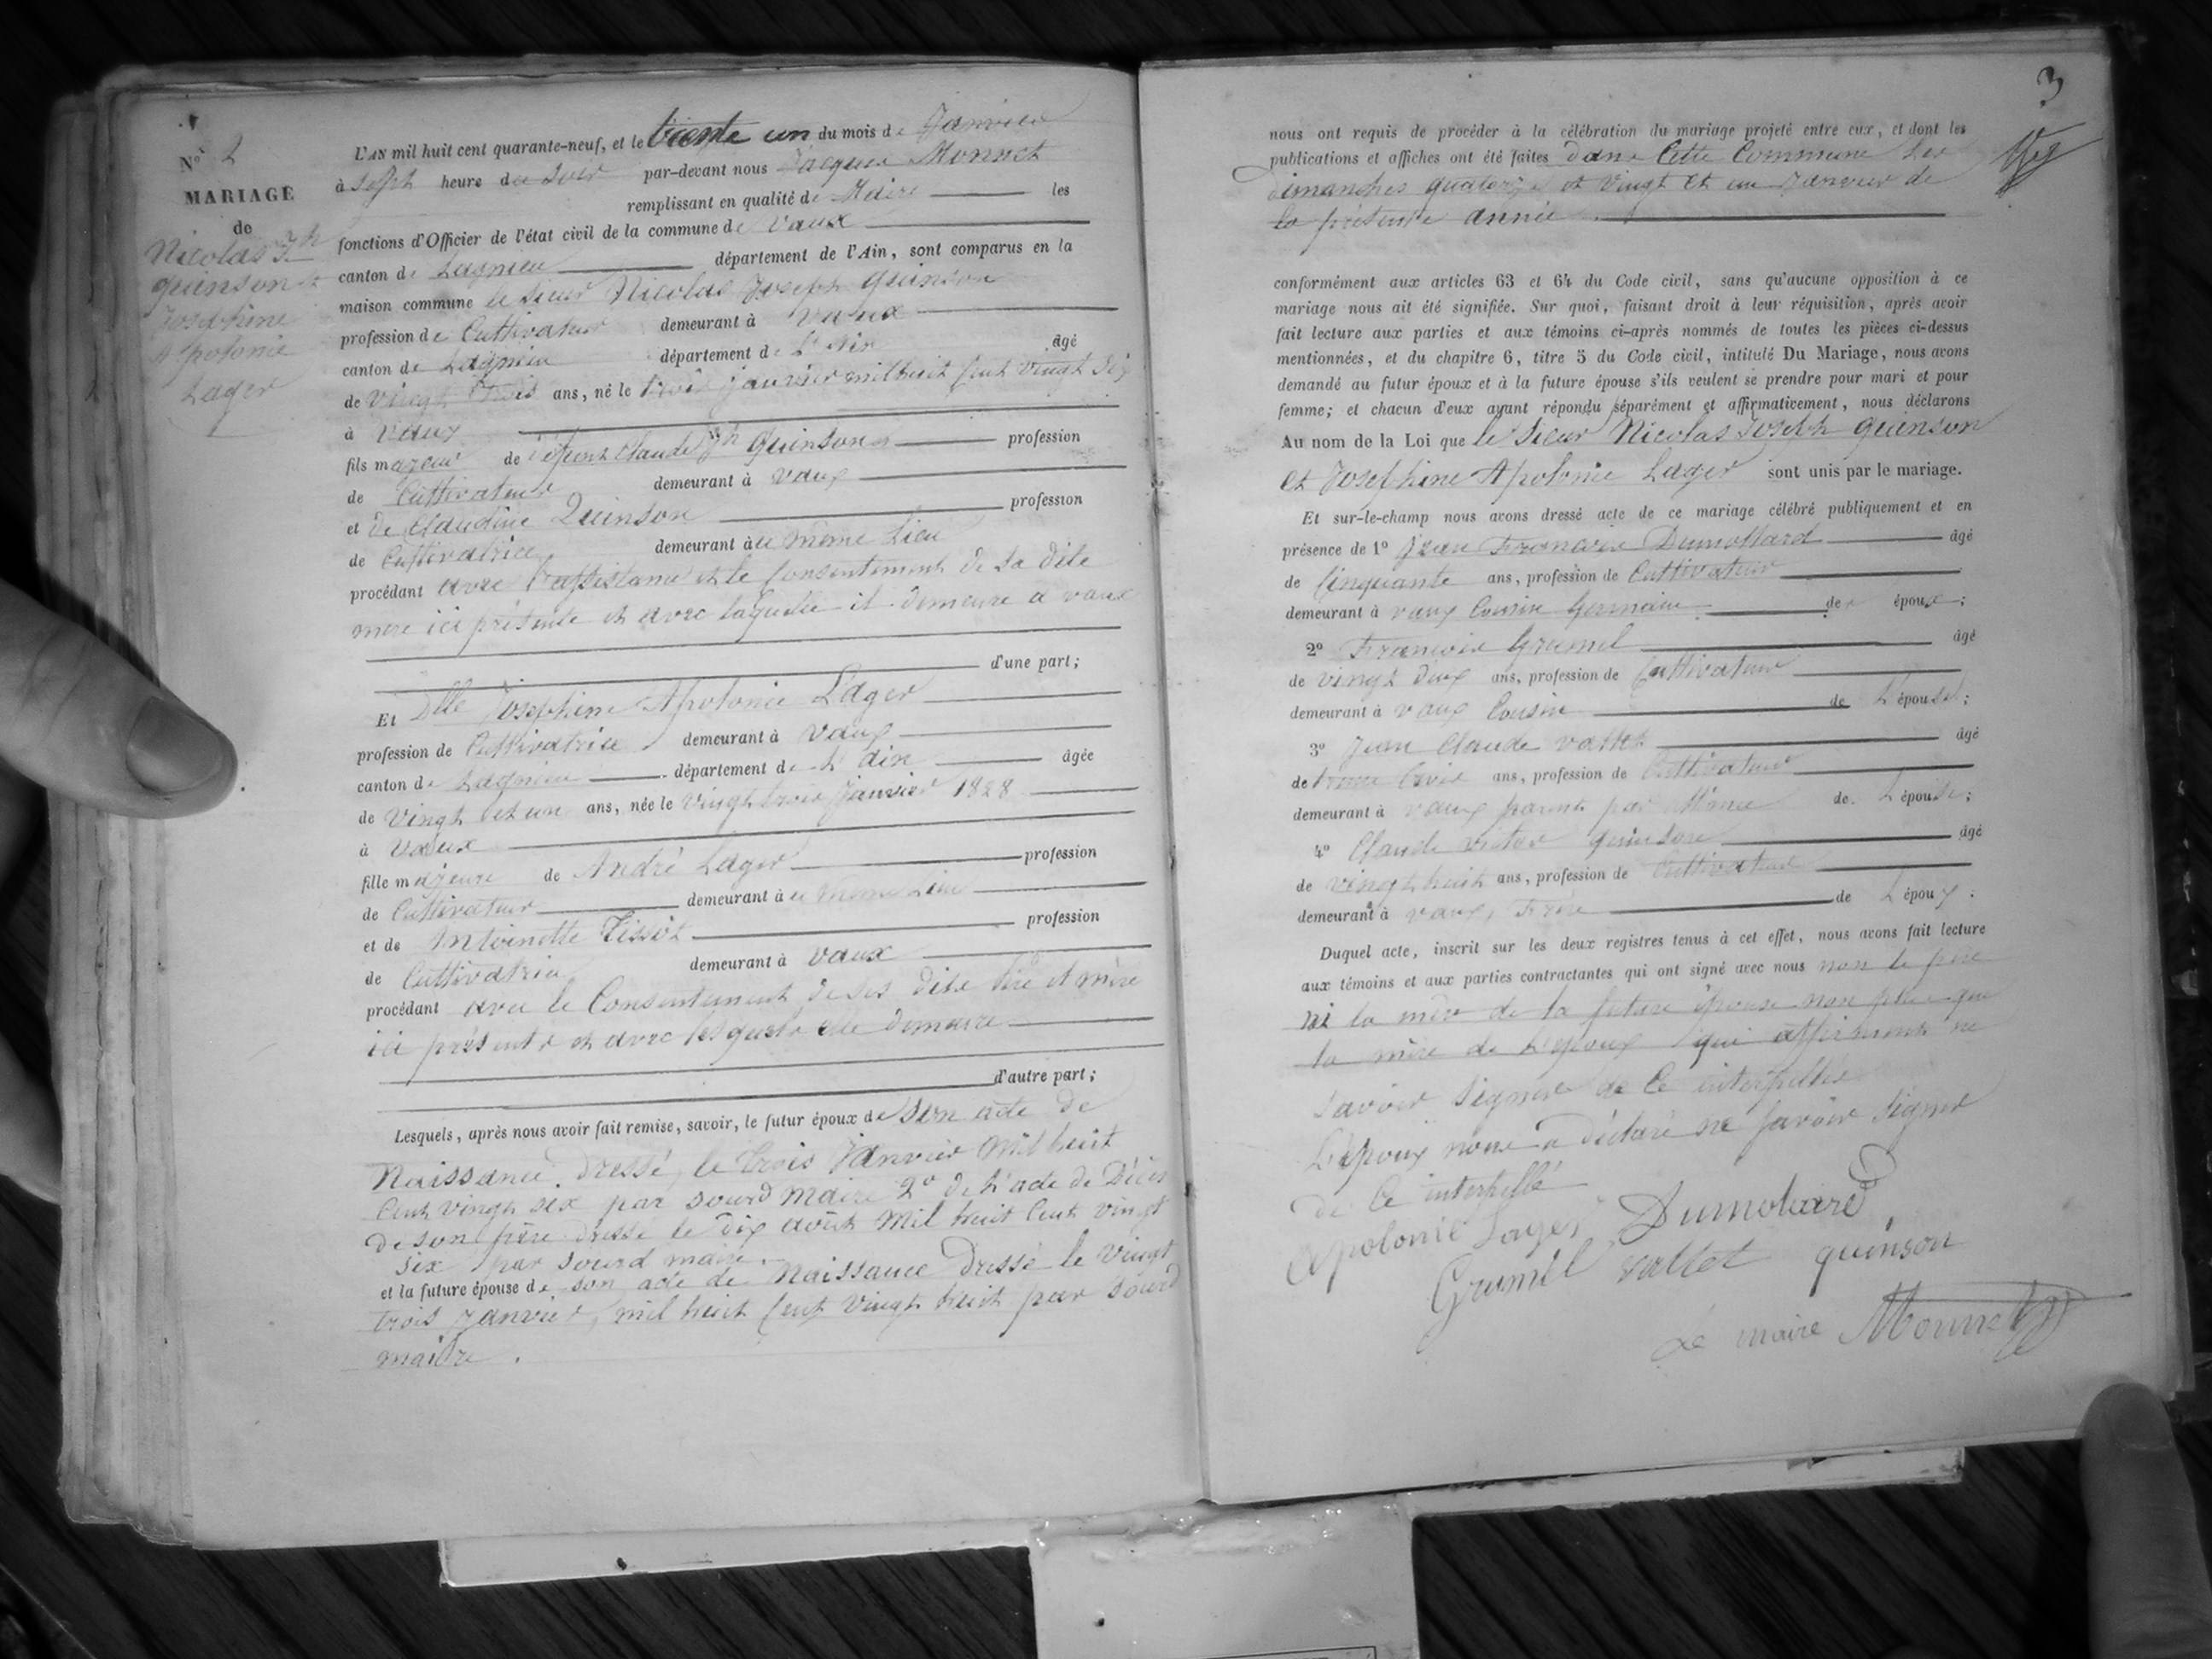 N° 2
MARIAGE
de
Nicolas Jh
quinson et
Josephine
Apolonie
Lager
L'AN mil huit cent quarante-neuf, et le trente un du mois de Janvier
à Sept heure du Soir par-devant nous Jacques Monnet
remplissant en qualité de Maire les
fonctions d'Officier de l'état civil de la commune de Vaux
canton de Lagnieu département de l'Ain, sont comparus en la
maison commune le Sieur Nicolas Joseph quinson
profession de Cultivateur demeurant à Vaux
canton de Lagnieu département de L'Ain âgé
de vingt trois ans, né le trois janvier mil huit cent vingt six
à Vaux
fils majeur de défunt Claude Jh quinson profession
de Cultivateur demeurant à Vaux
et de Claudine Quinson profession
de Cultivatrice demeurant à ce même Lieu
procédant avec l'assistance et le consentement de sa dite
mère ici présente et avec laquelle il demeure à vaux
d'une part;
Et Dlle Josephine Apolonie Lager
profession de Cultivatrice demeurant à Vaux
canton de Lagnieu département de L'ain âgée
de vingt et un ans, née le vingt trois Janvier 1828
à Vaux
fille majeure de André Lager profession
de Cultivateur demeurant à ce même Lieu
et de Antoinette Tissot profession
de Cultivatrice demeurant à Vaux
procédant avec le Consentement de ses dits père et mère
ici présents et avec lesquels elle demeure
d'autre part;
Lesquels, après nous avoir fait remise, savoir, le futur époux de son acte de
Naissance dressé le trois Janvier mil huit
Cent vingt six par Sourd maire 2° de L'acte de Décès
de son père dressé le dix août mil huit Cent vingt
six par Sourd maire.
et la future épouse de son acte de Naissance Dressé le vingt
trois Janvier, mil huit Cent vingt huit par Sourd
maire.
3
nous ont requis de procéder à la célébration du mariage projeté entre eux, et dont les
publications et affiches ont été faites dans Cette Commune Les
dimanches quatorze et vingt et un Janvier de
la présente année
conformément aux articles 63 et 64 du Code civil, sans qu'aucune opposition à ce
mariage nous ait été signifiée. Sur quoi, faisant droit à leur réquisition, après avoir
fait lecture aux parties et aux témoins ci-après nommés de toutes les pièces ci-dessus
mentionnées, et du chapitre 6, titre 5 du Code civil, intitulé Du Mariage, nous avons
demandé au futur époux et à la future épouse s'ils veulent se prendre pour mari et pour
femme; et chacun d'eux ayant répondu séparément et affirmativement, nous déclarons
Au nom de la Loi que le Sieur Nicolas Joseph quinson
et Josephine Apolonie Lager sont unis par le mariage.
Et sur-le-champ nous avons dressé acte de ce mariage célébré publiquement et en
présence de 1° Jean François Dumollard âgé
de Cinquante ans, profession de Cultivateur
demeurant à vaux Cousin Germain de époux;
2° François Grumel âgé
de vingt deux ans, profession de Cultivateur
demeurant à vaux Cousin de L'épouse;
3° Jean Claude vallet âgé
de trente trois ans, profession de Cultivateur
demeurant à vaux parent par alliance de L'épouse;
4° Claude victor quinson âgé
de vingt huit ans, profession de Cultivateur
demeurant à vaux, Frère de L'époux.
Duquel acte, inscrit sur les deux registres tenus à cet effet, nous avons fait lecture
aux témoins et aux parties contractantes qui ont signé avec nous non le père
ni la mère de la future épouse non plus que
la mère de L'époux qui affirment ne
savoir signer de Ce interpellés
L'époux nous a déclaré ne savoir signer
de Ce interpellé
apolonie Lager Dumolaird
Grumel vallet quinson
Le maire Monnet